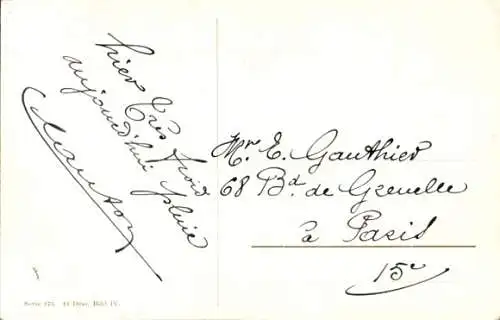 hier très froid
aujourd'hui pluie
Mr. E. Gauthier
68 Bd. de Grenelle
à Paris
15e